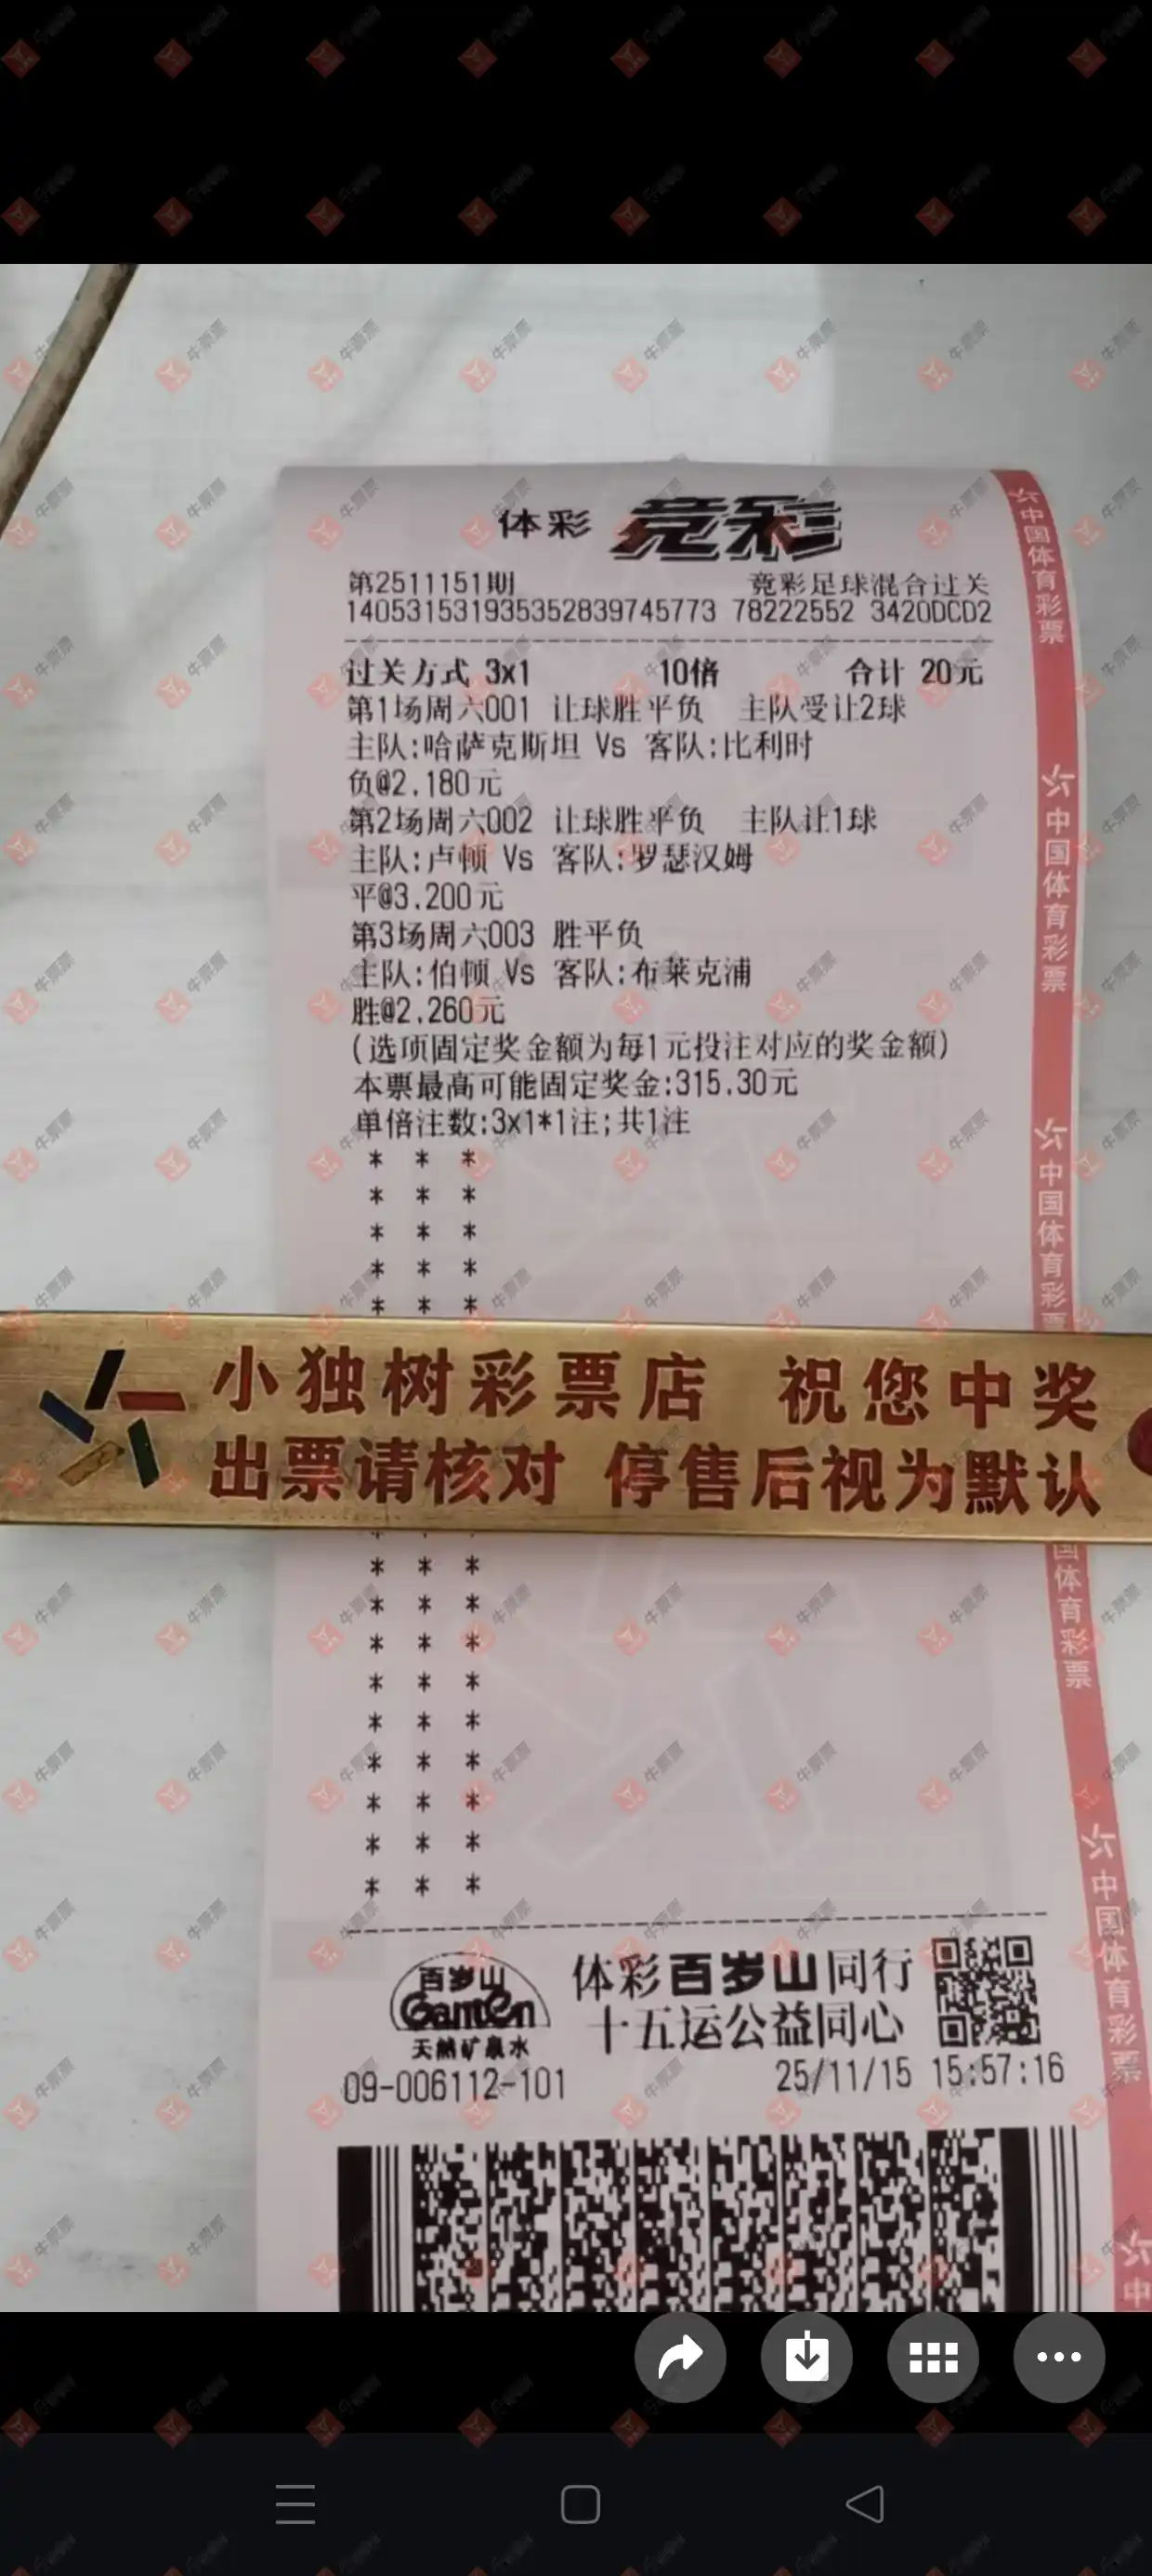 体彩 竞彩
第2511151期 竞彩足球混合过关
140531531935352839745773 78222552 3420DCD2
过关方式 3x1 10倍 合计 20元
第1场周六001 让球胜平负 主队受让2球
主队:哈萨克斯坦 Vs 客队:比利时
负@2.180元
第2场周六002 让球胜平负 主队让1球
主队:卢顿 Vs 客队:罗瑟汉姆
平@3.200元
第3场周六003 胜平负
主队:伯顿 Vs 客队:布莱克浦
胜@2.260元
(选项固定奖金额为每1元投注对应的奖金额)
本票最高可能固定奖金:315.30元
单倍注数:3x1*1注;共1注
* * *
* * *
* * *
* * *
* * *
小独树彩票店 祝您中奖
出票请核对 停售后视为默认
* * *
* * *
* * *
* * *
* * *
* * *
* * *
* * *
* * *
百岁山
Ganten
天然矿泉水
体彩百岁山同行
十五运公益同心
09-006112-101 25/11/15 15:57:16
中国体育彩票
中国体育彩票
中国体育彩票
国体育彩票
中国体育彩票
中
牛票票